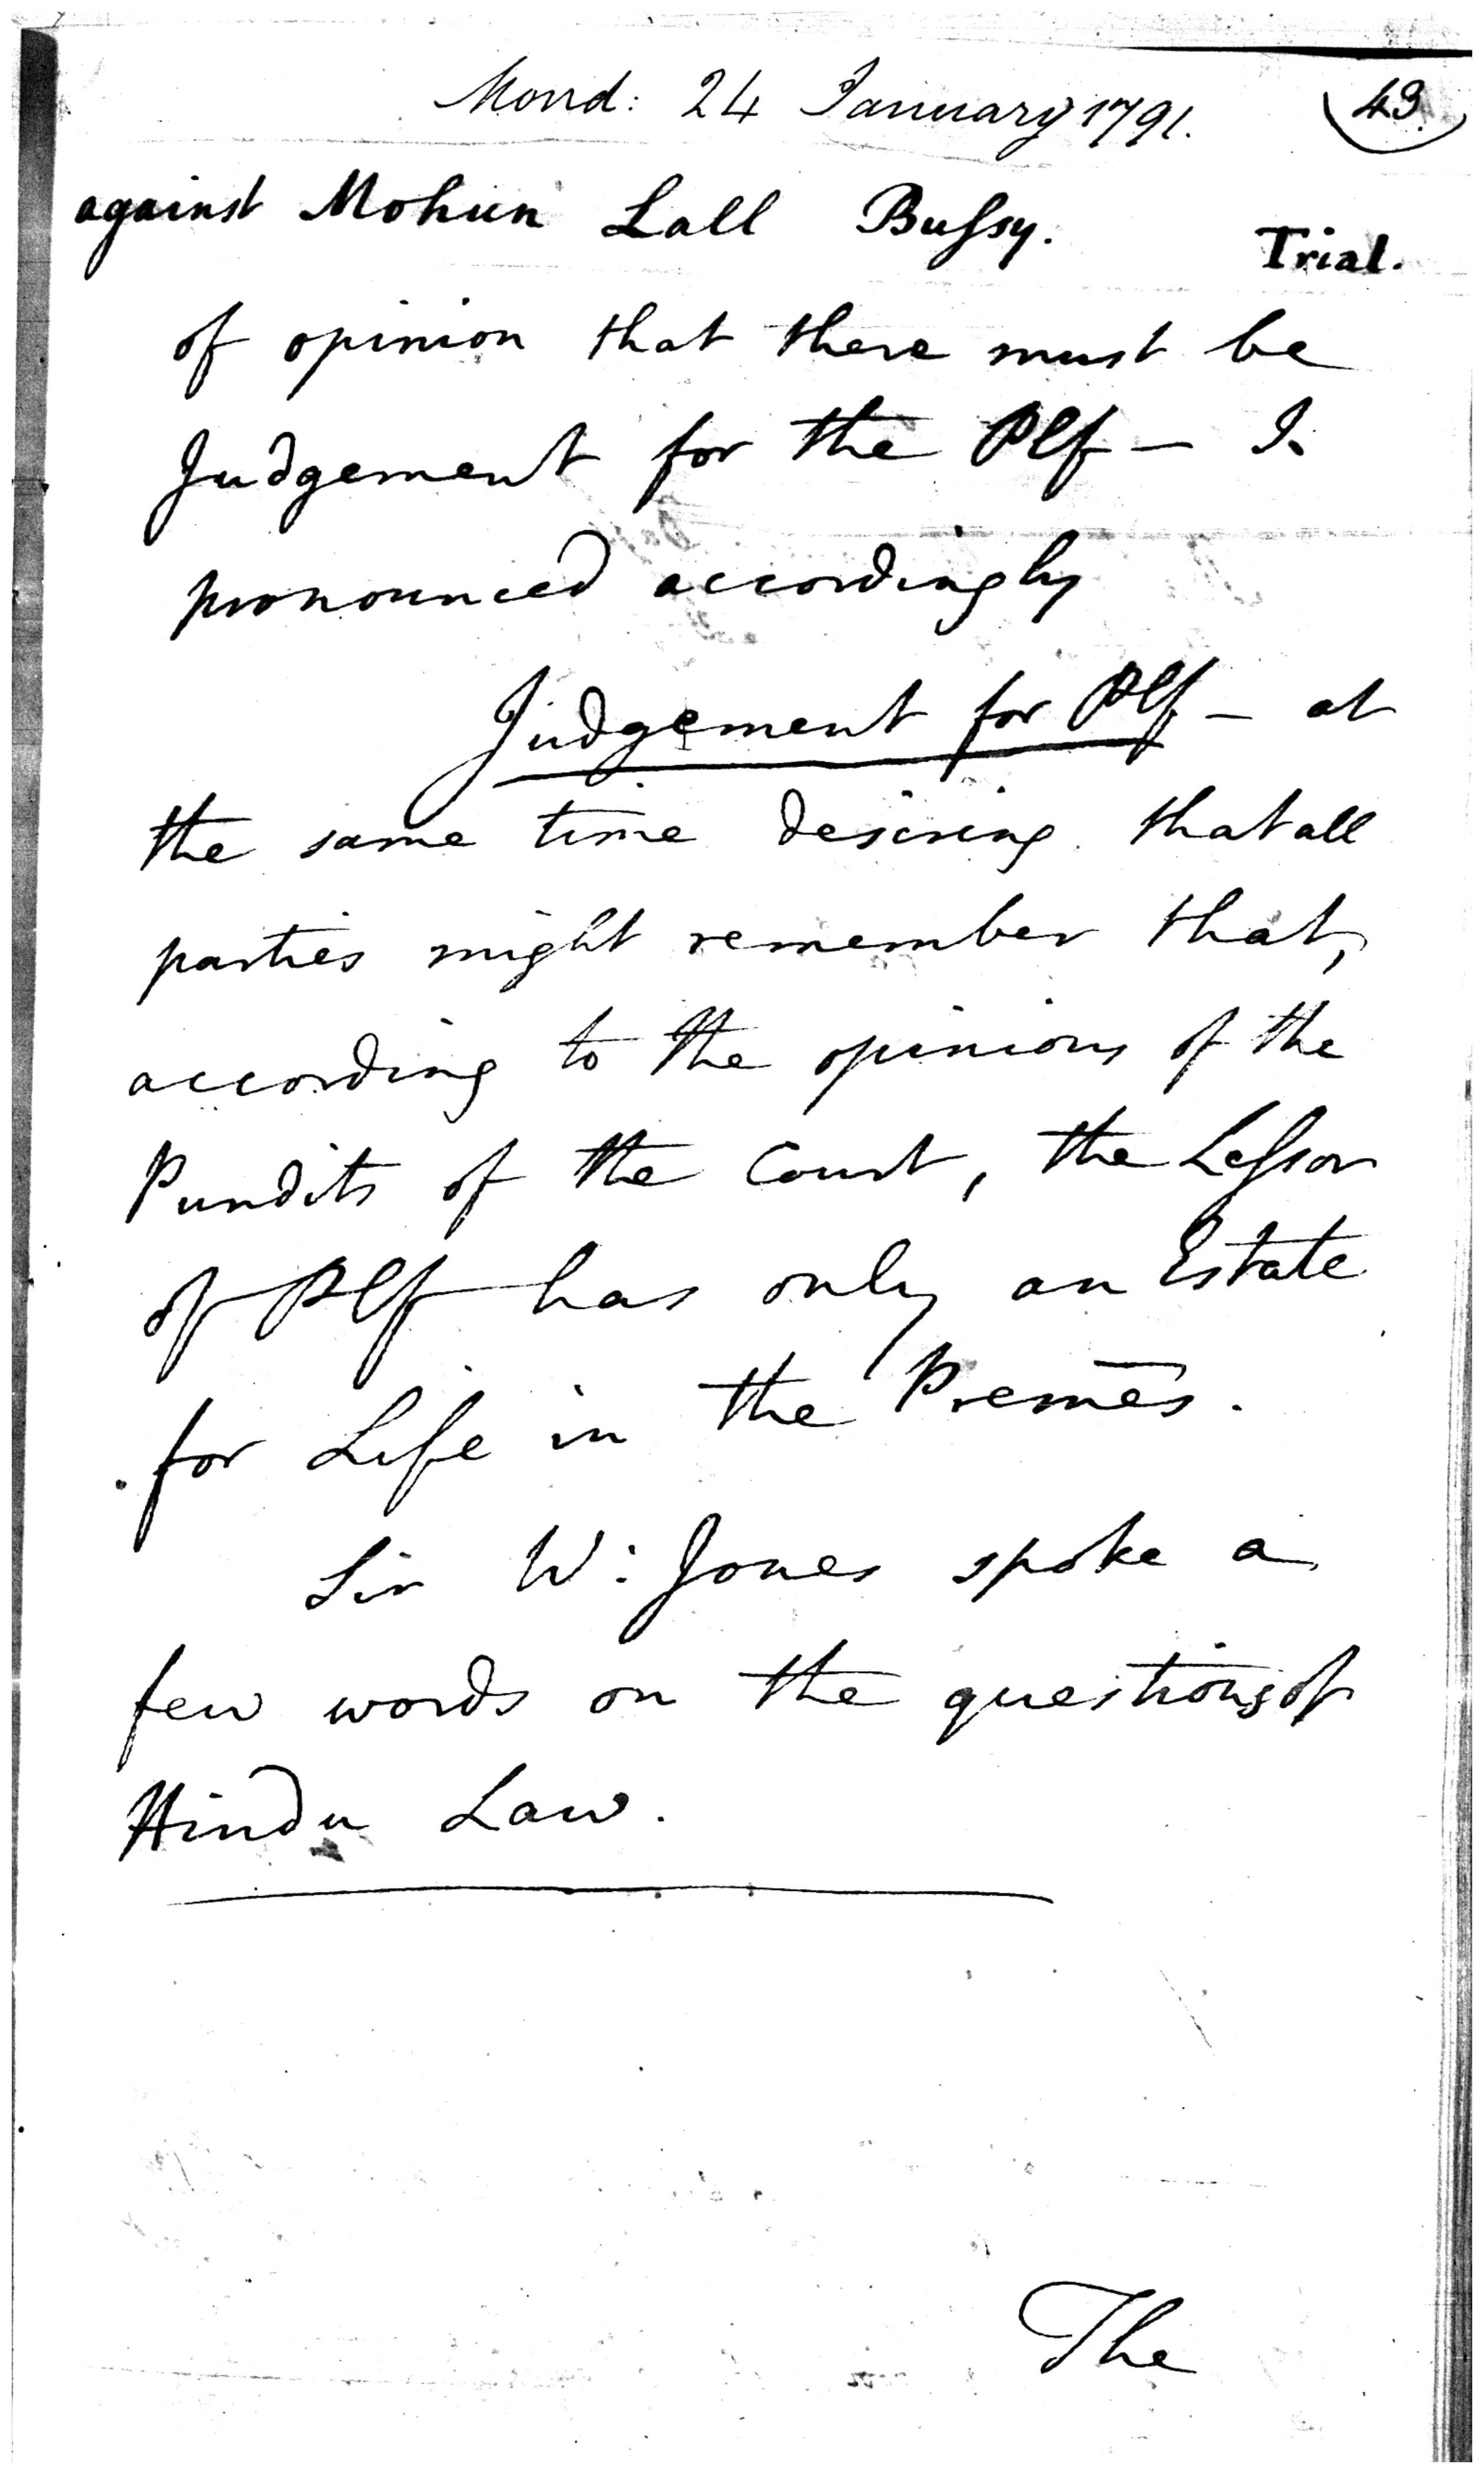 Mond: 24 January 1791. 43.
against Mohun Lall Buſsy. Trial.
of opinion that there must be
Judgement for the Plf — I
pronounced accordingly
Judgement for Plf — at
the same time desiring that all
parties might remember that,
according to the opinions of the
Pundits of the Court, the Leſsor
of Plf has only an Estate
for Life in the Premēs.
Sir W: Jones spoke a
few words on the questions of
Hindu Law.
The